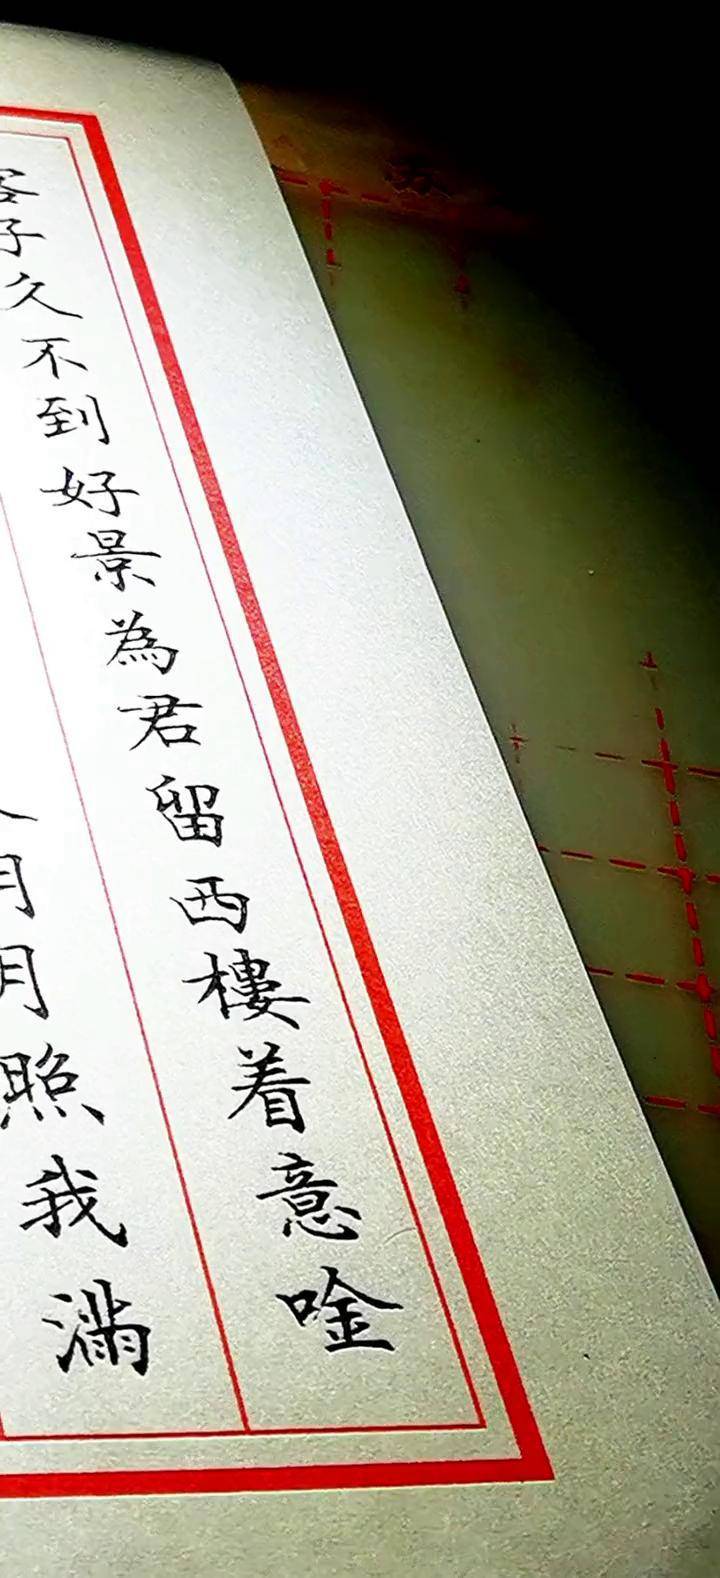 客子久不到好景為君留西樓着意唫
月照我滿